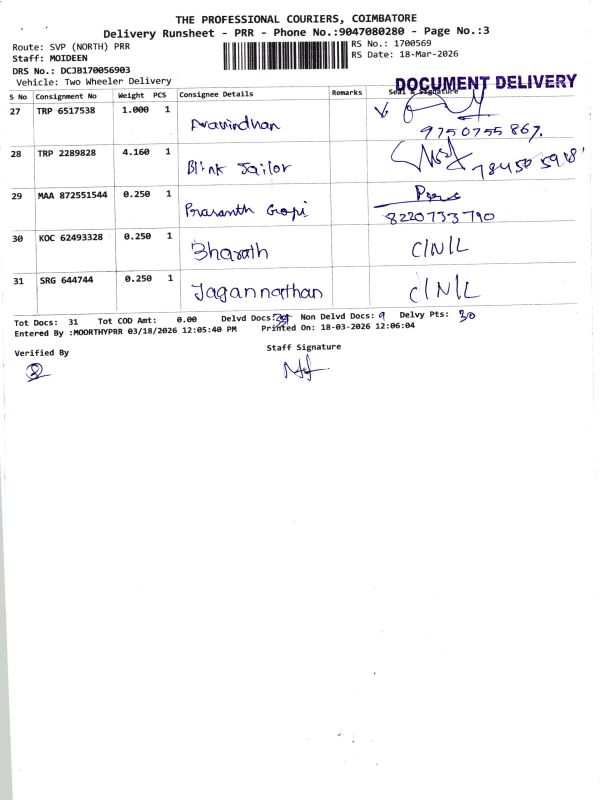 THE PROFESSIONAL COURIERS, COIMBATORE
Delivery Runsheet - PRR - Phone No.:9047080280 - Page No.:3
Route: SVP (NORTH) PRR RS No.: 1700569
Staff: MOIDEEN RS Date: 18-Mar-2026
DRS No.: DCJB170056903
Vehicle: Two Wheeler Delivery
DOCUMENT DELIVERY
S No Consignment No Weight PCS Consignee Details Remarks Seal & Signature
27 TRP 6517538 1.000 1 Aravindhan 9750755867.
28 TRP 2289828 4.160 1 Blink Tailor
29 MAA 872551544 0.250 1 Prasanth Gopi 8220733790
30 KOC 62493328 0.250 1 Bharath C/N/L
31 SRG 644744 0.250 1 Jagannathan C/N/L
Tot Docs: 31 Tot COD Amt: 0.00 Delvd Docs: Non Delvd Docs: 9 Delvy Pts: 30
Entered By :MOORTHYPRR 03/18/2026 12:05:40 PM Printed On: 18-03-2026 12:06:04
Verified By Staff Signature